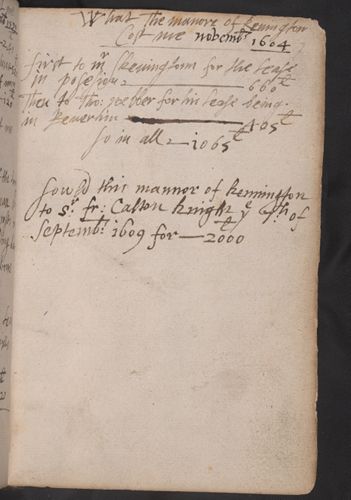 What the manore of kenington
Cost me nobemb^r 1604
first to m^r skevingtonn for the lease
in posesion — 660^£
Then to Tho: webber for his lease being
in Revertin — 405^£
so in all — 1065^£
Sow'd this mannor of kennington
to s^r fr: Calton knight y^e 9^th of
Septemb^r 1609 for — 2000^£